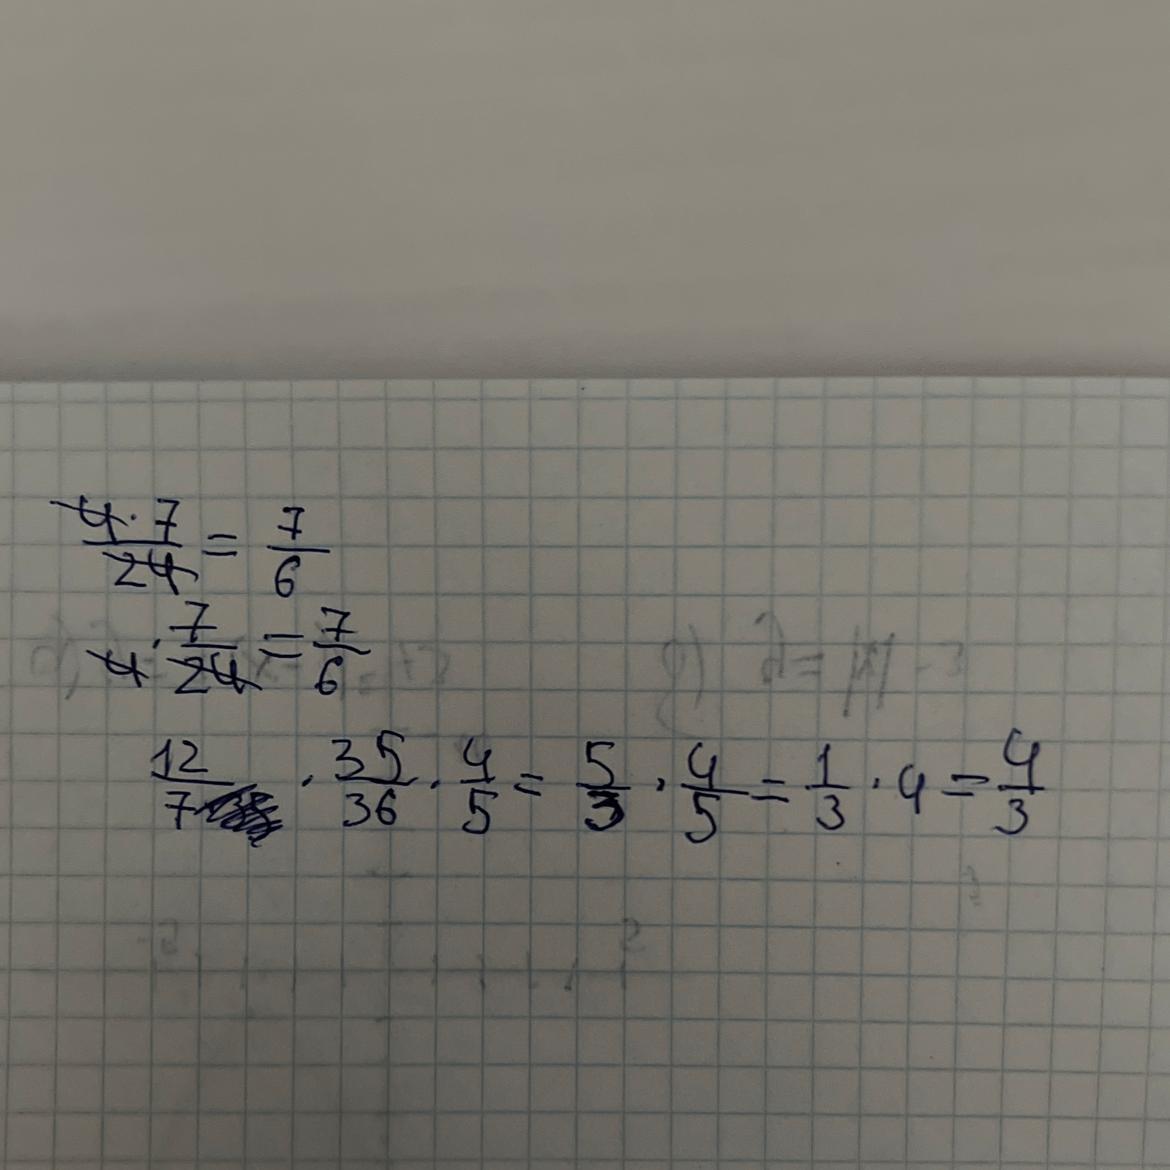 4·7/24 = 7/6
4·7/24 = 7/6
12/7 · 35/36 · 4/5 = 5/3 · 4/5 = 1/3 · 4 = 4/3